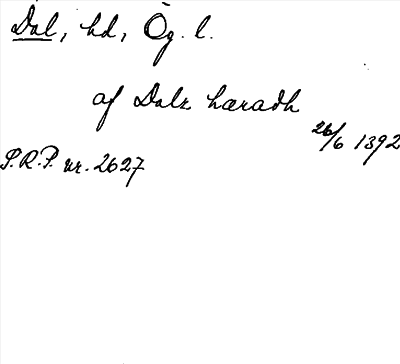 Dal, hd, Ög. l.
af Dalz hæradh
26/6 1392
P.R.P. nr. 2627